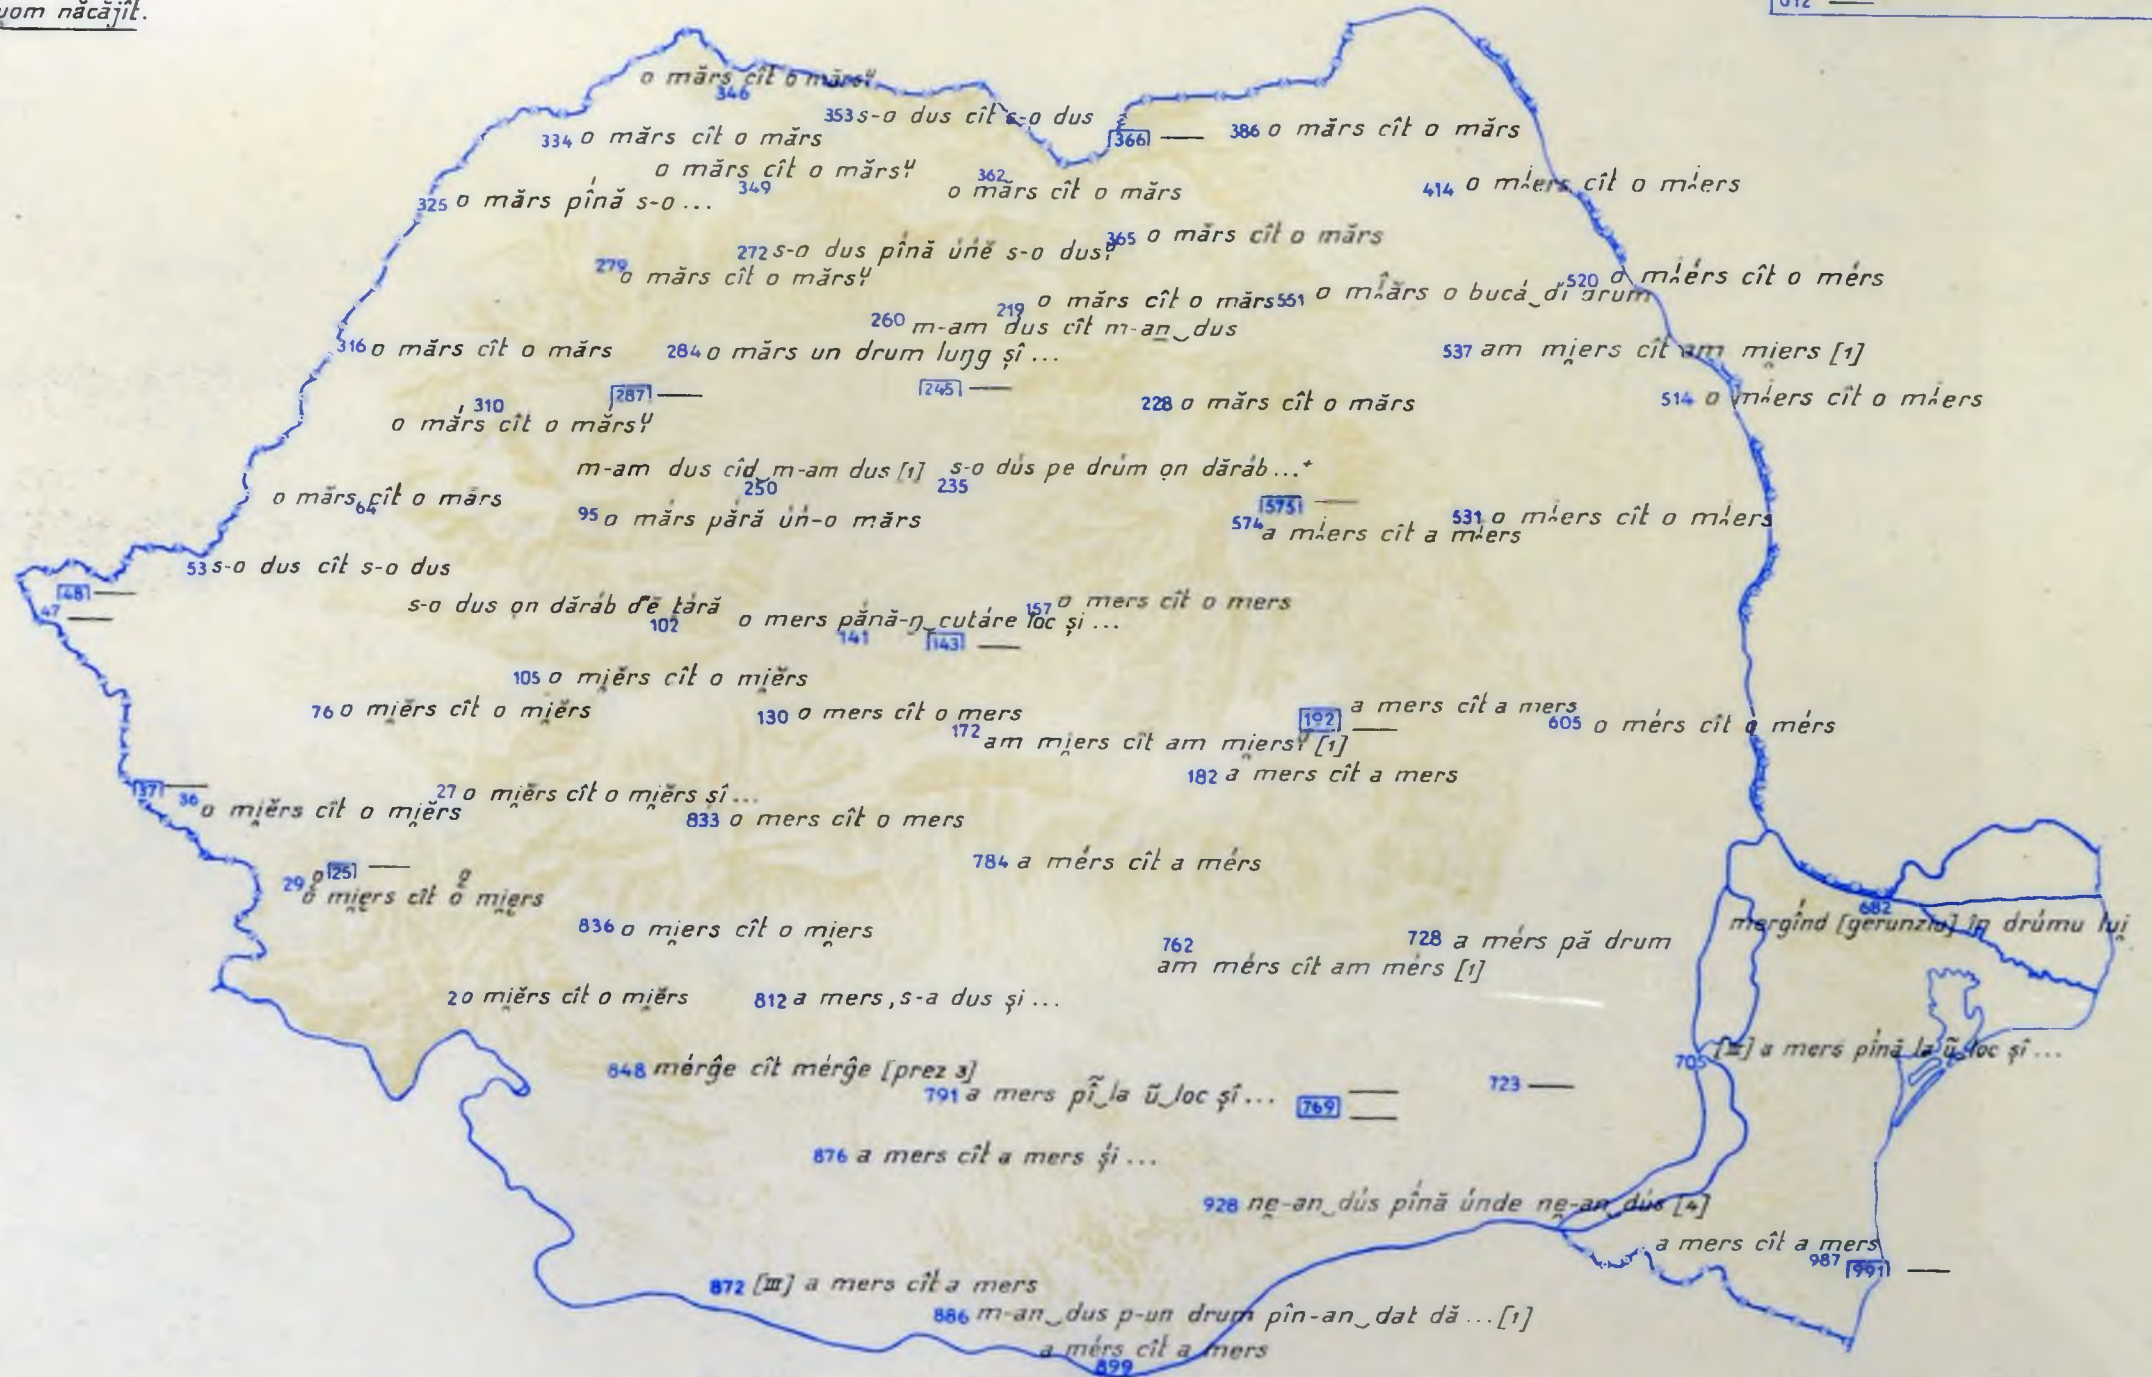 uom năcăjît.
612 —
o mărs cît o mărs
346
353 s-o dus cît s-o dus
334 o mărs cît o mărs
366 —
386 o mărs cît o mărs
o mărs cît o mărs
349
362
o mărs cît o mărs
414 o mi̯ers cît o mi̯ers
325 o mărs pînă s-o ...
365 o mărs cît o mărs
272 s-o dus pînă úńĕ s-o dus
279 o mărs cît o mărs
520 o mi̯érs cît o mérs
219 o mărs cît o mărs
551 o mi̯ârs o bucá‿di drum
260 m-am dus cît m-an‿dus
316 o mărs cît o mărs
284 o mărs un drum luŋg șî ...
537 am mi̯ers cît am mi̯ers [1]
287 —
245 —
310
o mắrs cît o mărs
228 o mărs cît o mărs
514 o mi̯ers cît o mi̯ers
m-am dus cîd‿m-am dus [1]
250
235 s-o dús pe drúm on dăráb ...+
o mărs cît o mărs
64
95 o mărs pără úń-o mărs
575 —
574 a mi̯ers cît a mi̯ers
531 o mi̯ers cît o mi̯ers
53 s-o dus cît s-o dus
48 —
47 —
s-o dus on dăráb d'ĕ țáră
102
o mers pắnă-ŋ‿cutáre loc și ...
141
157 o mers cît o mers
143 —
105 o mi̯ĕrs cît o mi̯ĕrs
76 o mi̯ĕrs cît o mi̯ĕrs
130 o mers cît o mers
192 —
a mers cît a mers
605 o mérs cît o mérs
172 am mi̯ers cît am mi̯ers [1]
182 a mers cît a mers
37 —
36 o mi̯ĕrs cît o mi̯ĕrs
27 o mi̯ĕrs cît o mi̯ĕrs șî ...
833 o mers cît o mers
784 a mérs cît a mérs
25 —
29 o mi̯ers cît o mi̯ers
682
mergînd [gerunziu] în drúmu lui̯
836 o mi̯ers cît o mi̯ers
762
am mérs cît am mérs [1]
728 a mérs pă drum
2 o mi̯ĕrs cît o mi̯ĕrs
812 a mers, s-a dus și ...
705 [III] a mers pînă la ũ‿loc șî ...
848 mérĝe cît mérĝe [prez 3]
791 a mers pî̃‿la ũ‿loc șî ...
769 —
—
723 —
876 a mers cît a mers și ...
928 ne̯-an‿dús pînă únde ne̯-an‿dús [4]
a mers cît a mers
987
991 —
872 [III] a mers cît a mers
886 m-an‿dus p-un drum pîn-an‿dat dă ... [1]
a mérs cît a mers
899